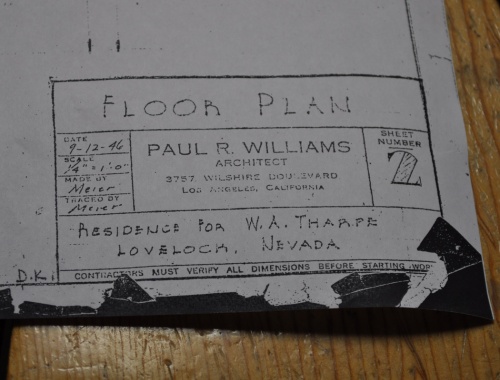 FLOOR PLAN
DATE
9-12-46
SCALE
1/4" = 1'0"
MADE BY
Meier
TRACED BY
Meier
PAUL R. WILLIAMS
ARCHITECT
3757 WILSHIRE BOULEVARD
LOS ANGELES, CALIFORNIA
SHEET
NUMBER
2
RESIDENCE FOR W. A. THARPE
LOVELOCK, NEVADA
D.K.
CONTRACTORS MUST VERIFY ALL DIMENSIONS BEFORE STARTING WOR